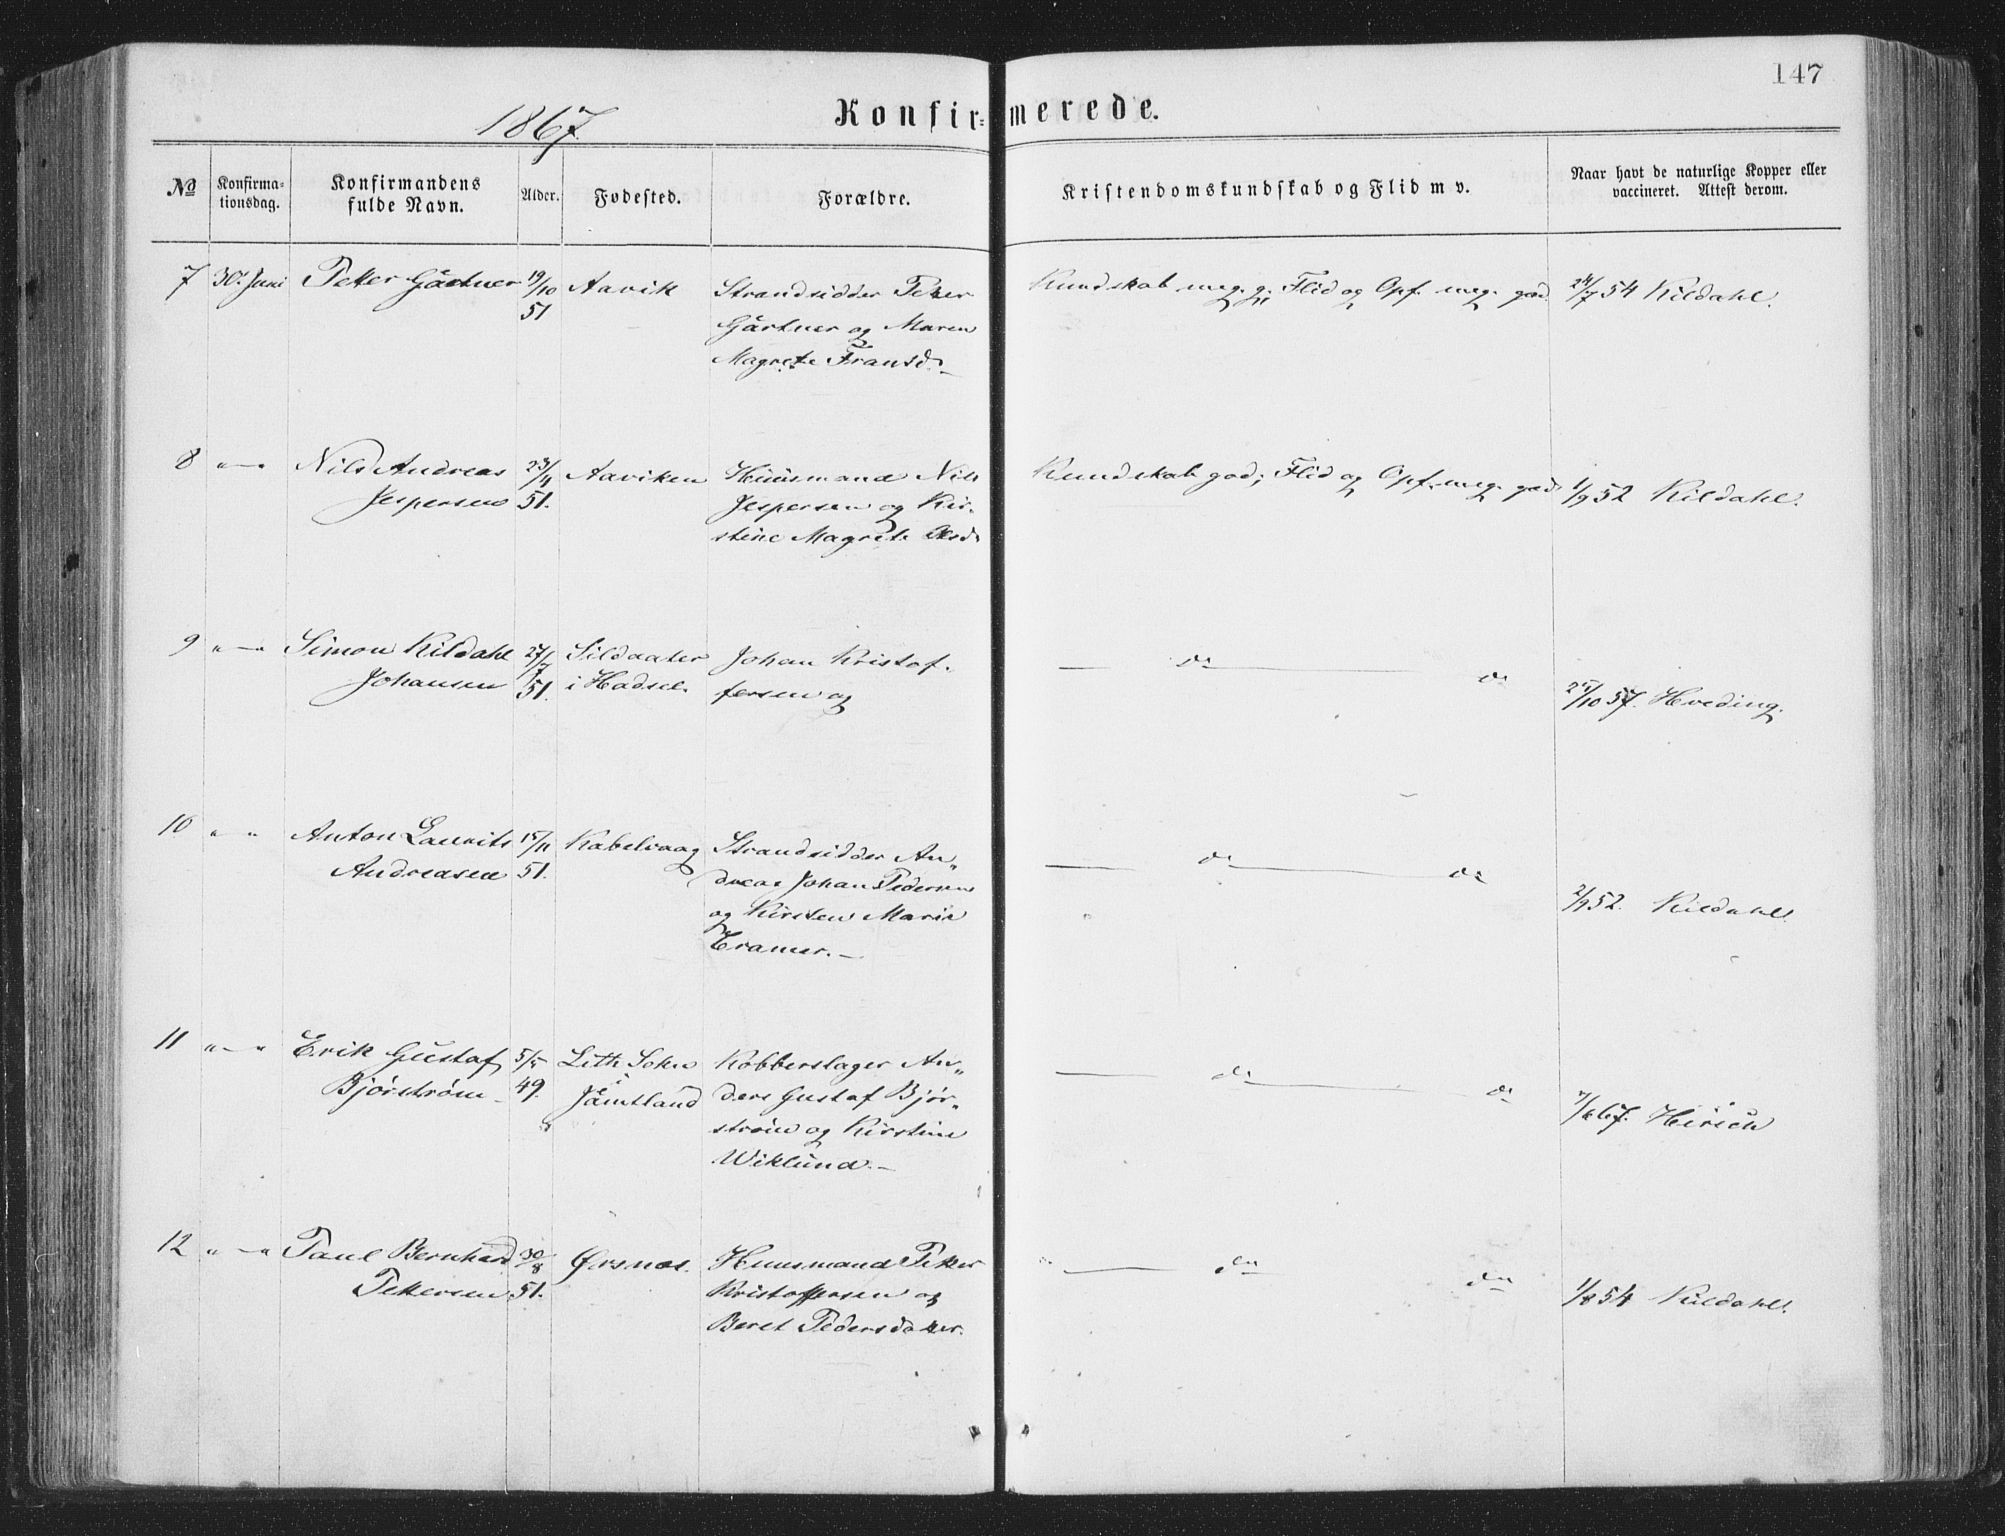 147
1867.
Konfirmerede.
No
Konfirmationsdag.
Konfirmandens fulde Navn.
Alder.
Fødested.
Forældre.
Kristendomskundskab og Flid m v.
Naar havt de naturlige Kopper eller vaccineret. Attest derom.
7 30' Juni Petter Gärtner 19/10 51 Aavik Strandsidder Peter
Gärtner og Maren
Magrete Fransd. –
Kundskab meg. g.; Flid og Opf. meg. god. 24/7 54 Kildahl.
8 " — " Nils Andreas 23/11 Aaviken Huusmand Nils
Jespersen 51. Jespersen og Kir-
stine Magrete Olsd.
Kundskab god; Flid og Opf. meg. god. 1/9 52 Kildahl.
9 " — " Simon Kildahl 27/7 Sildaater Johan Kristof-
Johansen 51. i Hadsel. fersen og
— do — do
25/10 57. Hveding.
10 " " Anton Laurits 15/11 Kabelvaag Strandsidder An„
Andreasen 51. dreas Johan Pedersen
og Kirsten Marie
Cramer. –
— do — do
2/9 52. Kildahl.
11 " – " Erik Gustaf 5/5 Lith Sokn Kobberslager An„
Bjørström 49. i Jämtland ders Gustaf Bjør„
ström og Kirstine
Wiklund. –
— do — do
7/6 67. Hirsch
12 " — " Paul Bernhard 30/8 Ørsnes. Huusmand Peter
Pettersen 51. Kristoffersen og
Beret Pedersdatter.
— do do
1/8 54 Kildahl.